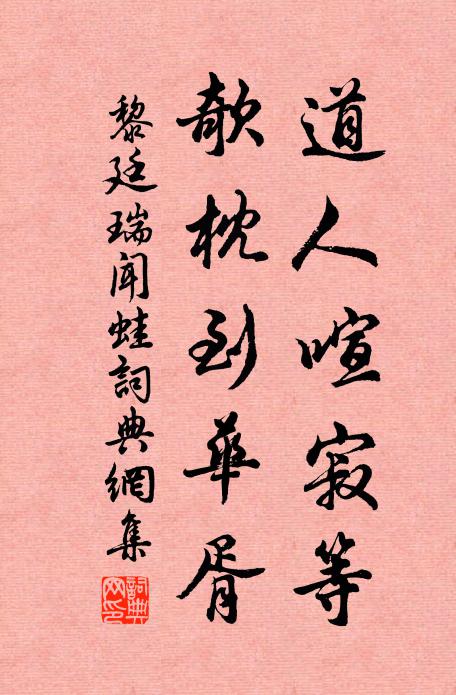 道人喧寂等
欹枕到華胥
黎廷瑞聞蛙詞典網集
詞典网印